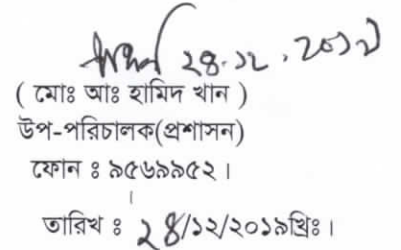 ২৪.১২.২০১৯
( মোঃ আঃ হামিদ খান )
উপ-পরিচালক(প্রশাসন)
ফোন ঃ ৯৫৬৯৯৫২।
তারিখ ঃ ২৪/১২/২০১৯খ্রিঃ।